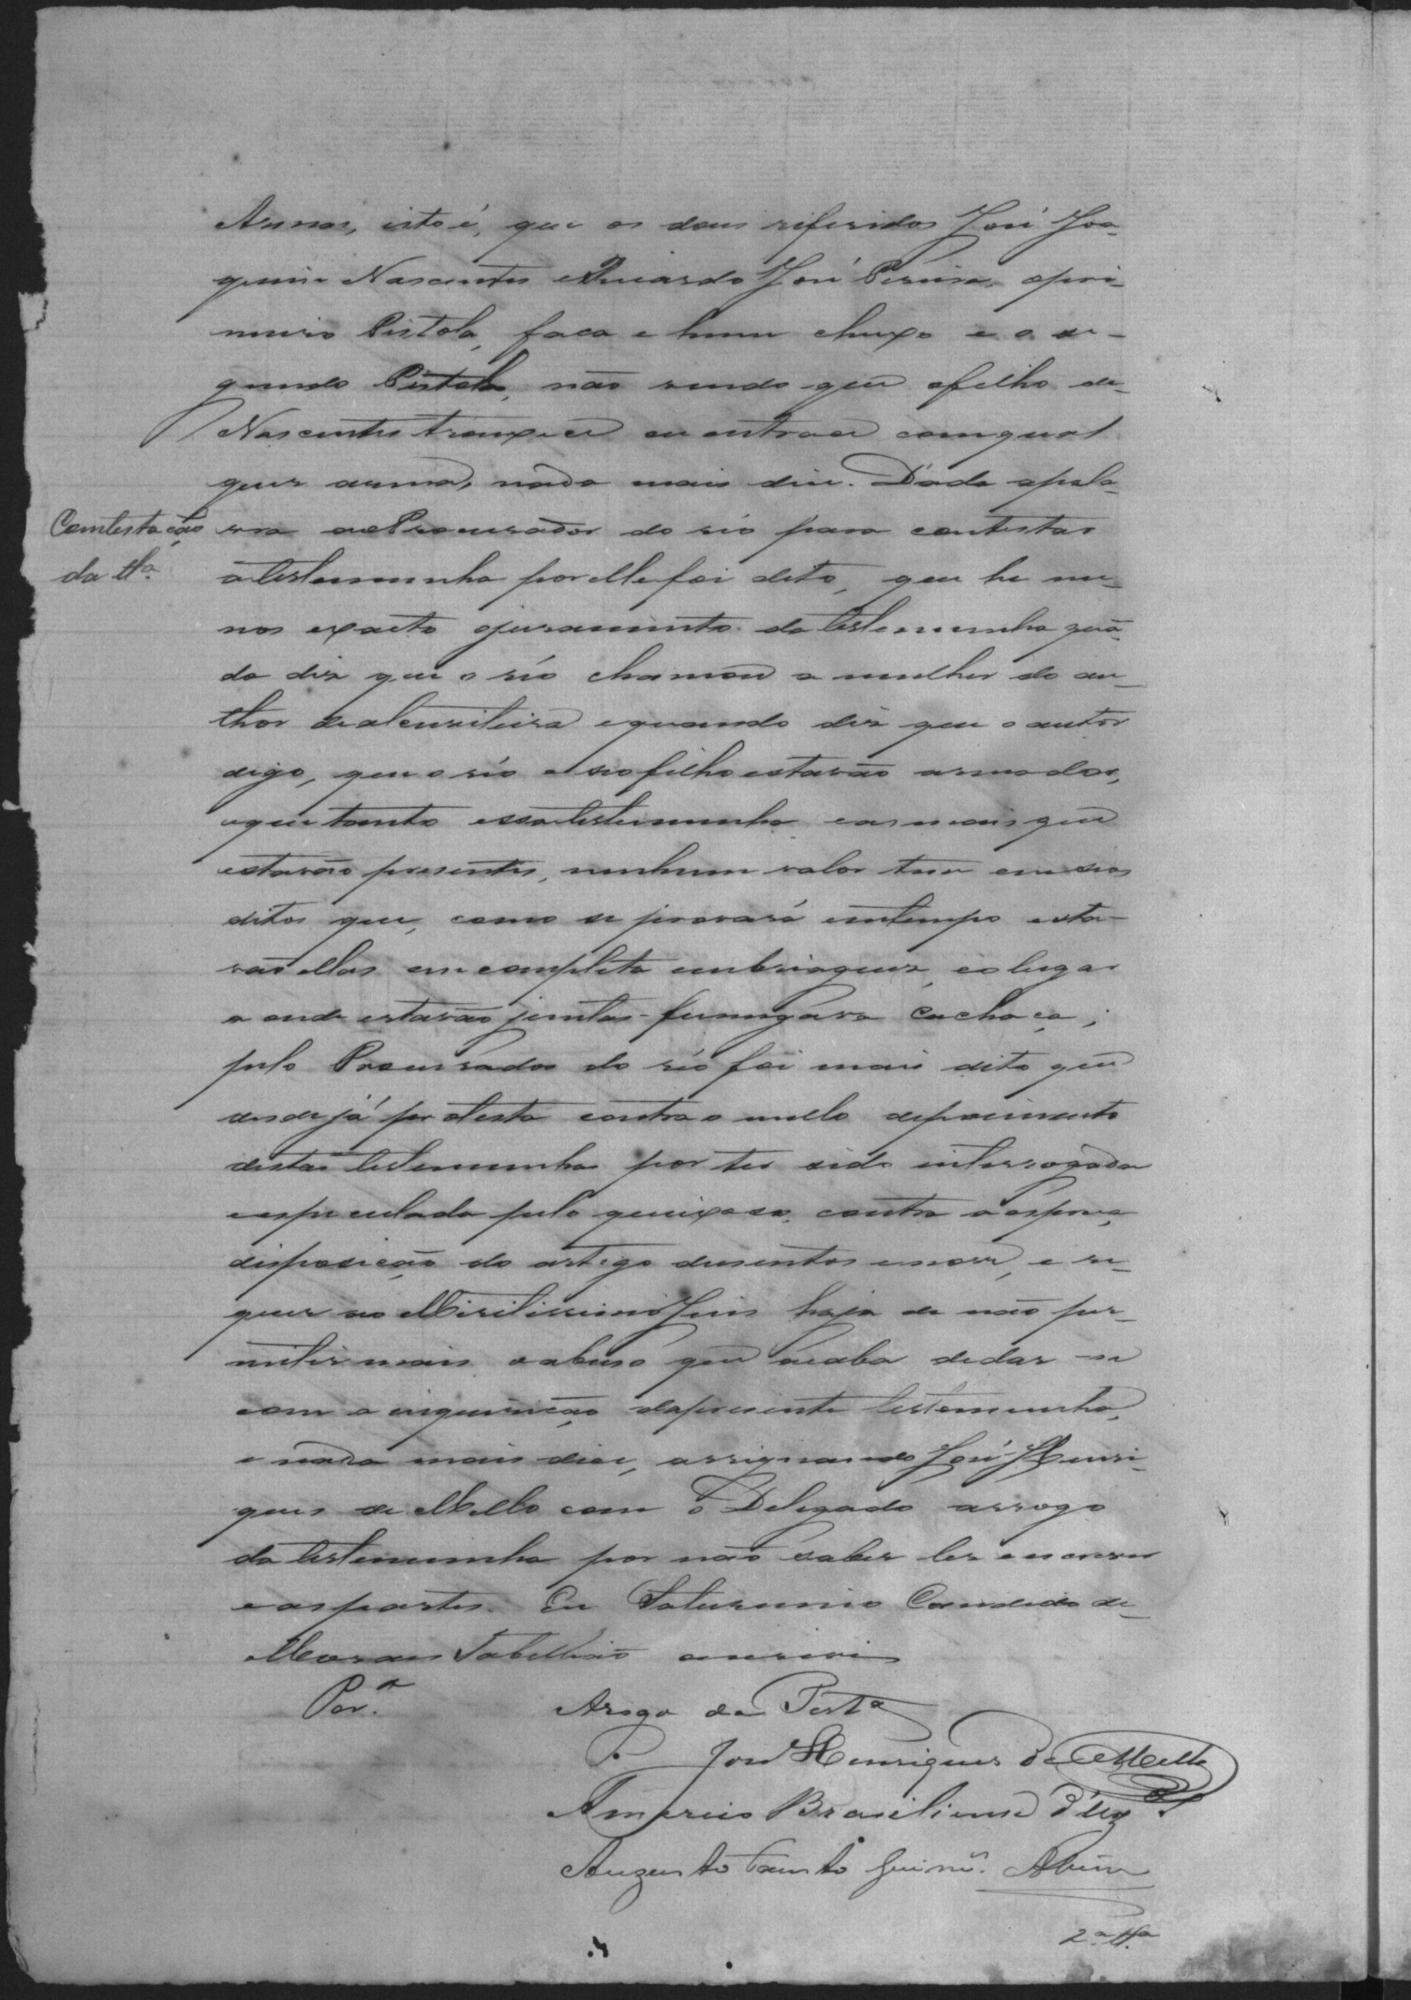 Armas, isto é, que os dous referidos José Joa-
quim Nascentes e Ricardo José Pereira, o pri-
meiro Pistola, faca e hum chuço e o se-
gundo Pistola, não vendo que o filho de
Nascentes trouxece ou entrace com qual
quer arma, nada mais dice. Dada a pala-
Contestação
da tta.
vra ao Procurador do réo para contestar
a testemunha por elle foi dito, que he me-
nos exacto o juramento da testemunha quan-
do diz que o réo chamou a mulher do au-
thor de alcuviteira e quando diz que o autor
digo, que o réo e seo filho estavão armados,
e que tanto essa testemunha como as mais que
estavão presentes, nenhum valor tem em seos
ditos que, como se provará em tempo esta-
vão ellas em completa embriaguez, e o lugar
a onde estavão juntas fumegava Cachaça;
pelo Procurador do réo foi mais dito que
desde já protesta contra o nullo depoimento
desta testemunha por ter sido interrogada
e especulada pelo queixoso, contra a expreça
disposição do artigo dusentos e nove, e re-
quer ao Meritissimo Juis haja de não per-
mitir mais o abuso que acaba de dar-se
com a inquirição da presente testemunha,
e nada mais dice, assignando José Henri-
ques de Mello com o Delegado arrogo
da testemunha por não saber ler e escrever
e as partes. Eu Saturnino Candido de
Moraes Tabellião escrevi
Por.ª
Arogo da Testª
José Henriques de Mello
Americo Brasiliense d'
Augusto Fausto Guimes.
2ª tta.